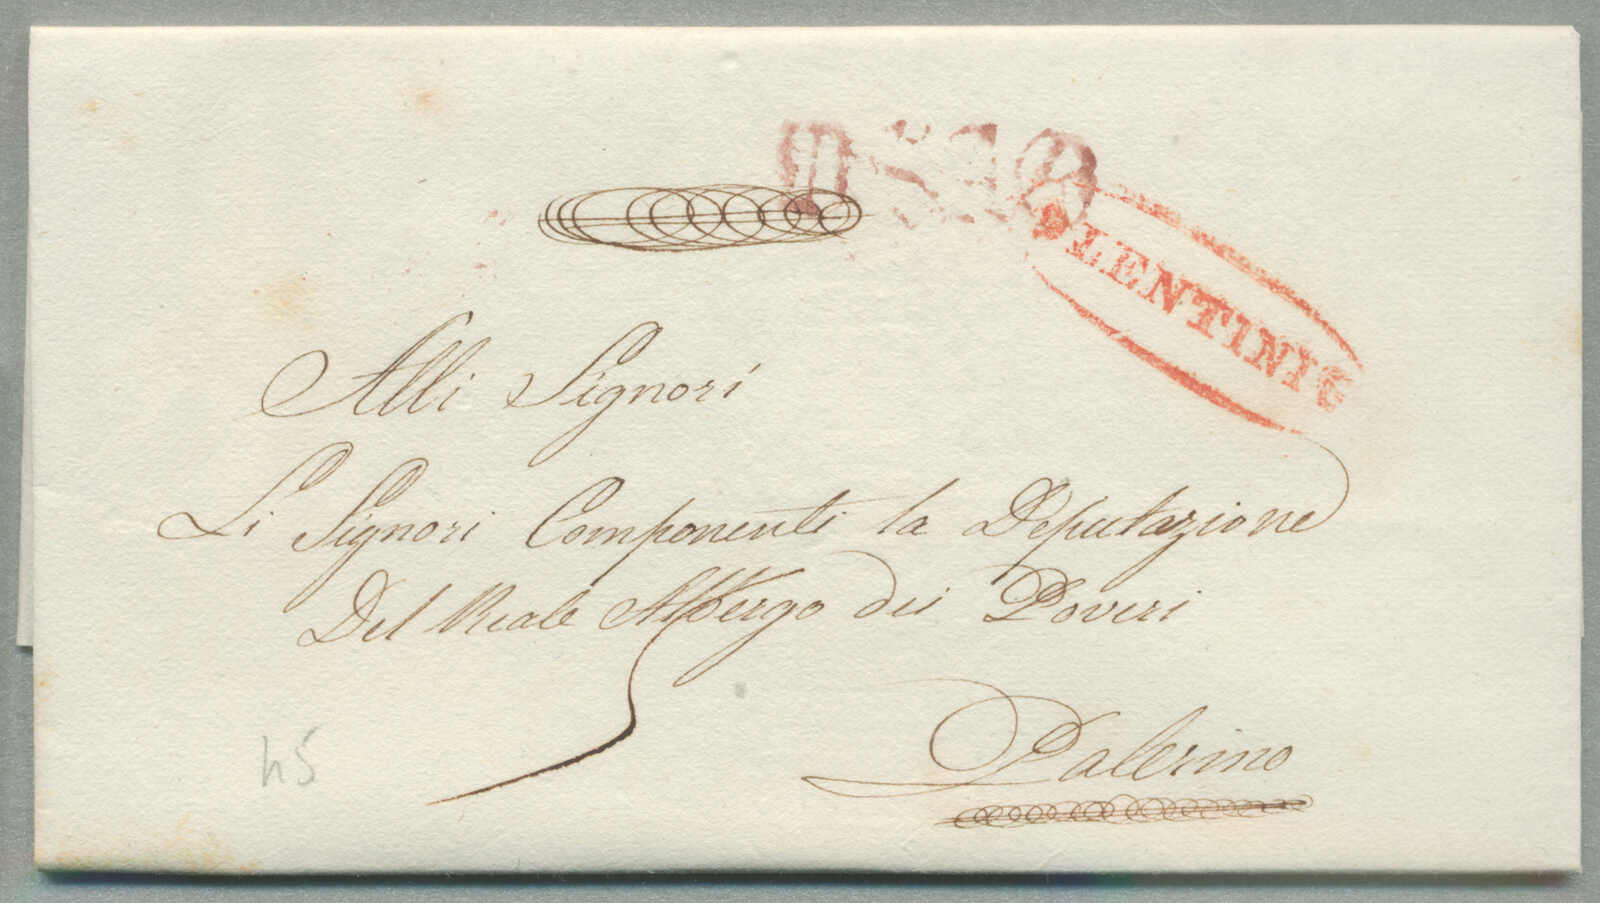 LENTINI
Alli Signori
Li Signori Componenti la Deputazione
Del Reale Albergo dei Poveri
Palermo